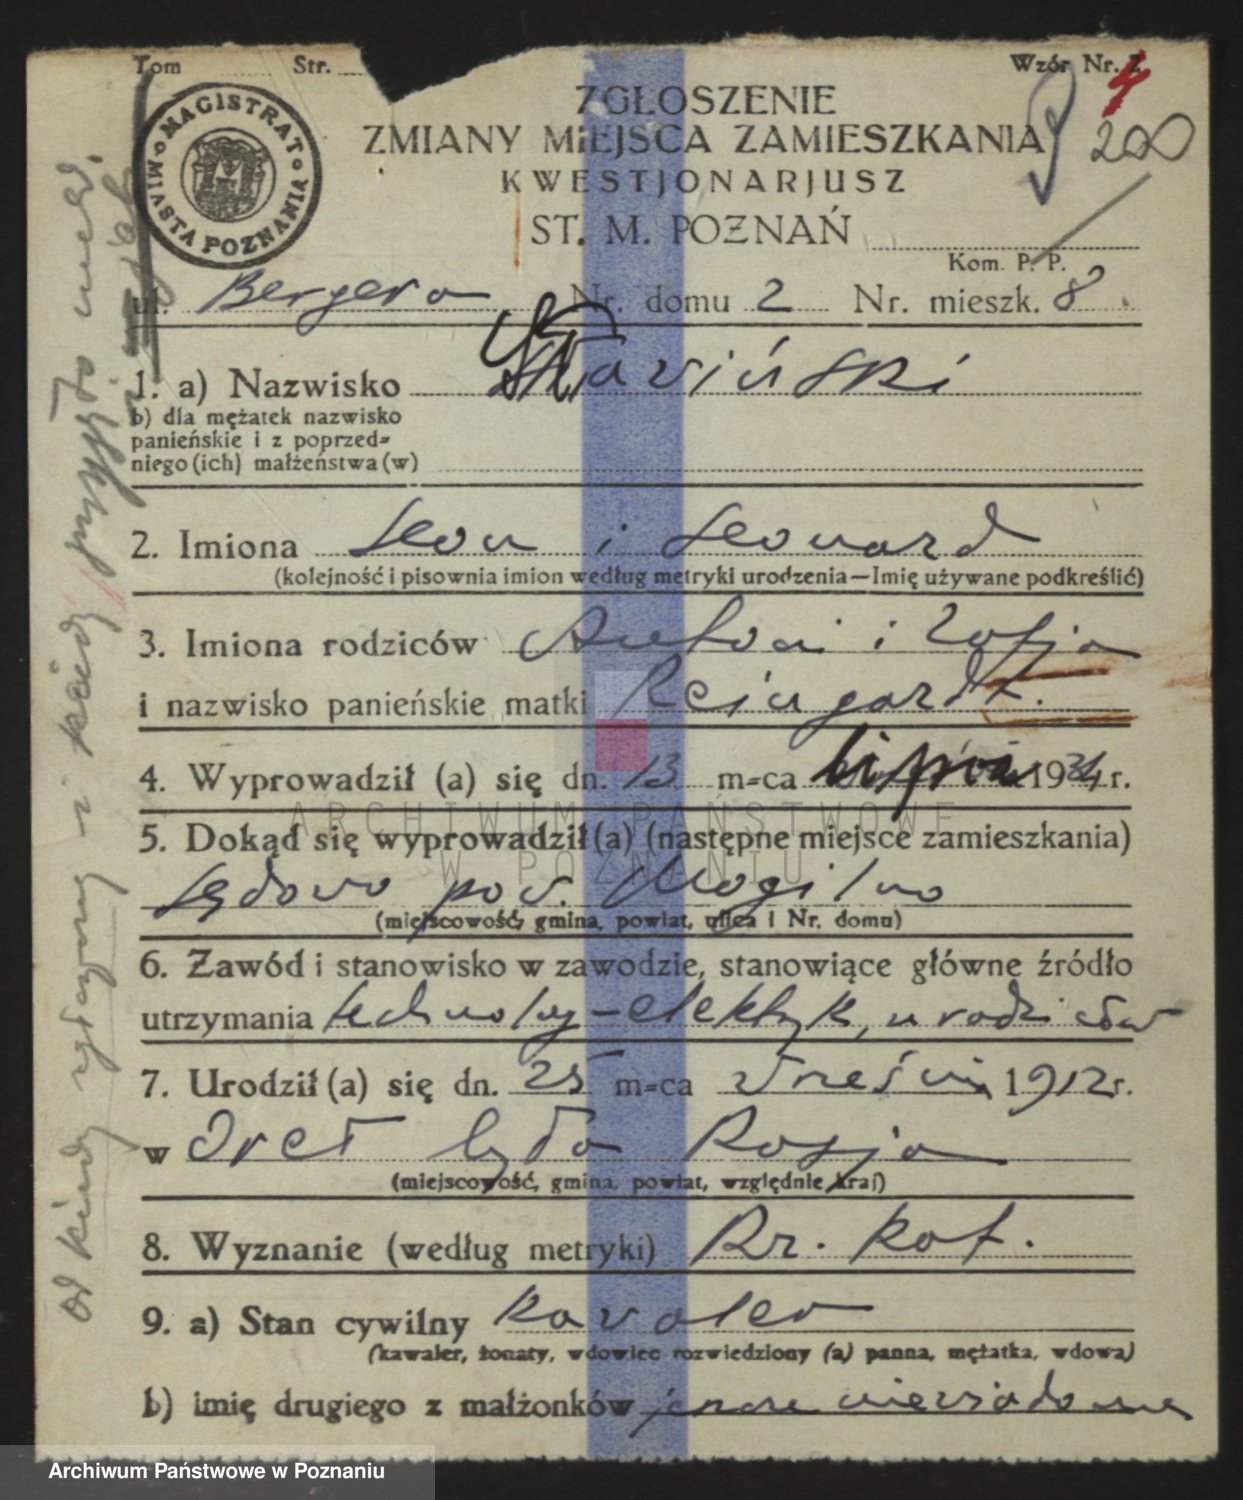 Tom Str. Wzór Nr. 2
4
200
MAGISTRAT MIASTA POZNANIA
ZGŁOSZENIE
ZMIANY MIEJSCA ZAMIESZKANIA
KWESTJONARJUSZ
ST. M. POZNAŃ
Kom. P. P.
ul. Bergera Nr. domu 2 Nr. mieszk. 8
1. a) Nazwisko
b) dla mężatek nazwisko
panieńskie i z poprzed=
niego (ich) małżeństwa (w)
2. Imiona Leon i Leonard
(kolejność i pisownia imion według metryki urodzenia—Imię używane podkreślić)
3. Imiona rodziców Antoni i Zofja
i nazwisko panieńskie matki Reingardt.
4. Wyprowadził (a) się dn. 13 m=ca lipca 1934 r.
5. Dokąd się wyprowadził (a) (następne miejsce zamieszkania)
pow. Mogilno
(miejscowość, gmina, powiat, ulica i Nr. domu)
6. Zawód i stanowisko w zawodzie, stanowiące główne źródło
utrzymania technolog-elektryk, u rodziców
7. Urodził (a) się dn. 25 m=ca września 1912 r.
w Oreł Rosja
(miejscowość, gmina, powiat, względnie kraj)
8. Wyznanie (według metryki) Rz. kat.
9. a) Stan cywilny kawaler
(kawaler, żonaty, wdowiec rozwiedziony (a) panna, mężatka, wdowa)
b) imię drugiego z małżonków
od kiedy i kiedy
ARCHIWUM PAŃSTWOWE
W POZNANIU
Archiwum Państwowe w Poznaniu